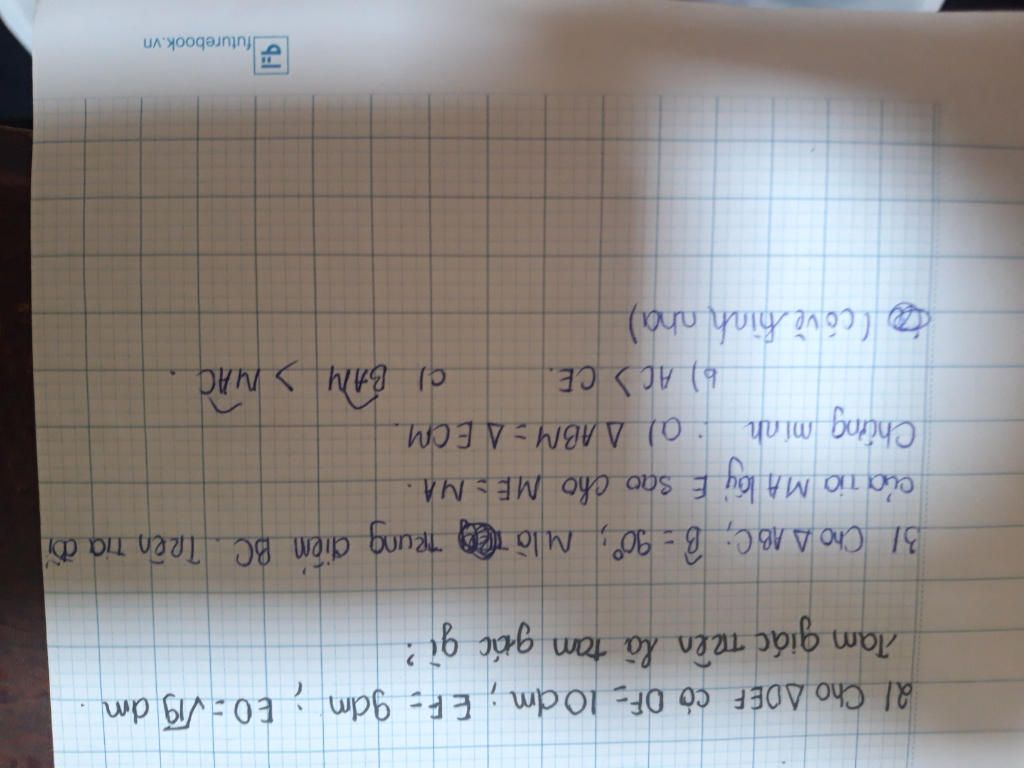 2) Cho ΔDEF có DF = 10 dm ; EF = 9dm ; ED = √19 dm .
Tam giác trên là tam giác gì?
3) Cho ΔABC, B̂ = 90°, M là trung điểm BC. Trên tia đối
của tia MA lấy E sao cho ME = MA.
Chứng minh : a) Δ ABM = Δ ECM.
b) AC > CE. c) BÂM > MÂC .
(có vẽ hình nha)
futurebook.vn